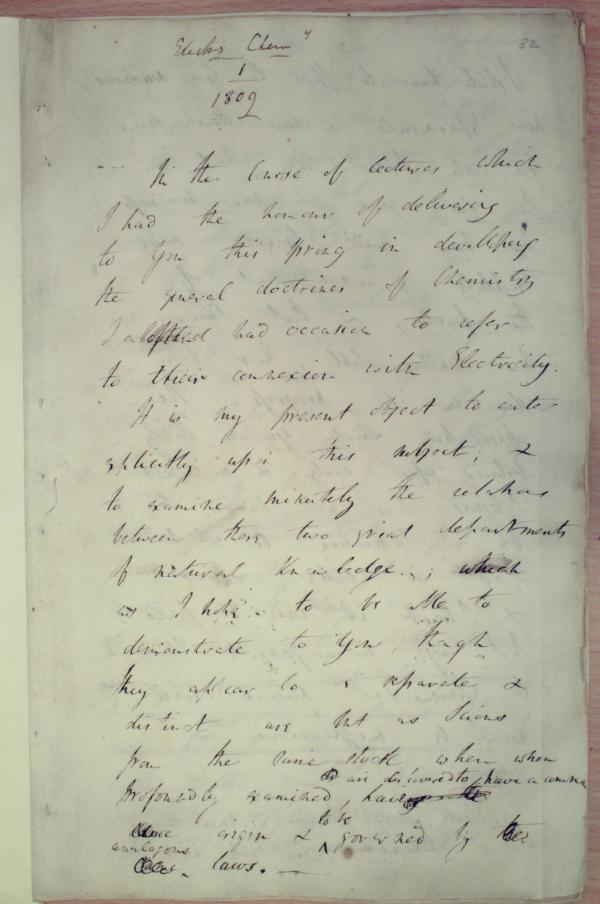 32
Electro Chemy
1
1809
--- In the Curse of lectures which
I had the honour of delivering
to you this spring in develloping
the general doctrines of Chemistry
I had occasion to refer
to their connexion with Electricity.
It is my present object to enter
explicitly upon this subject; &
to examine minutely the relations
between these two great departments
of natural Knowledge.; which
as I hope to be able to
demonstrate to you, though
they appear to be separate &
distinct are but as Scions
from the same stock, when when
are discovered to have a common
profoundly examined, having the
origin & to be governed by
analogous
laws. —